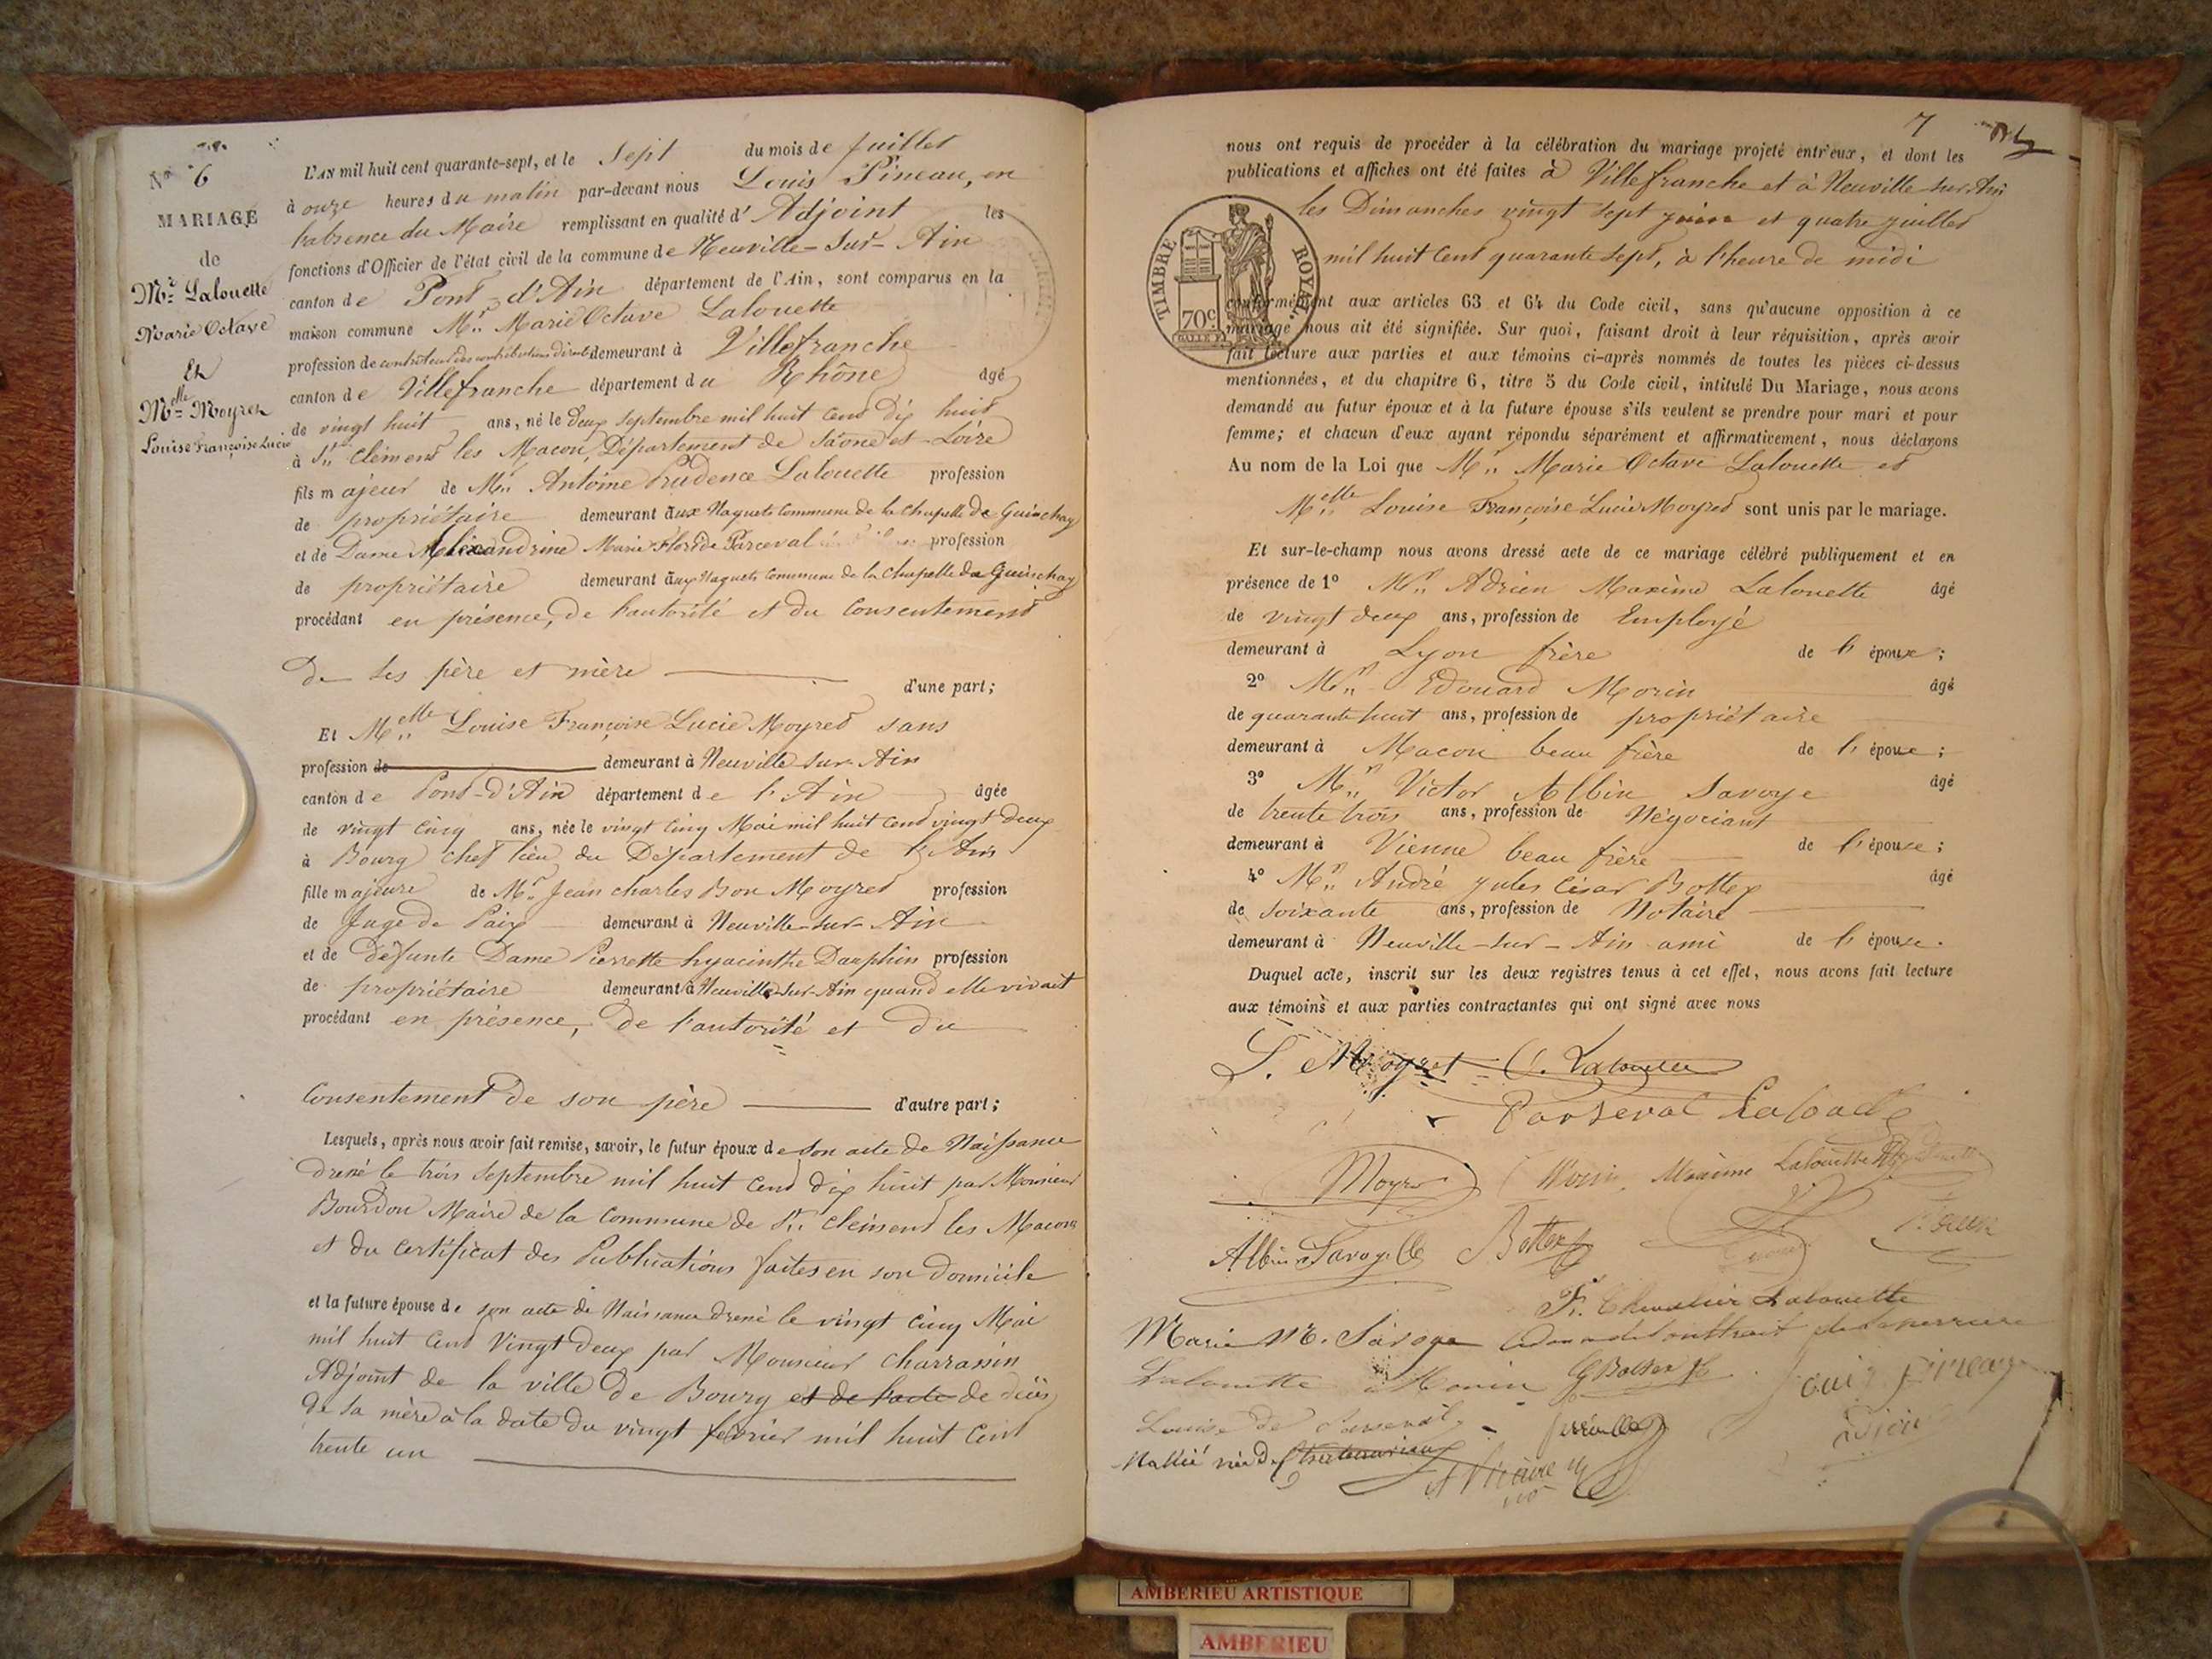 No 6
MARIAGE
de
Mr. Lalouette
Marie Octave
Et
Melle Moyret
Louise Françoise Lucie
L'AN mil huit cent quarante-sept, et le Sept du mois de Juillet
à onze heures du matin par-devant nous Louis Pineau, en
l'absence du Maire remplissant en qualité d'Adjoint les
fonctions d'Officier de l'état civil de la commune de Neuville-Sur-Ain
canton de Pont-d'Ain département de l'Ain, sont comparus en la
maison commune Mr. Marie Octave Lalouette
profession de controleur des contributions directes demeurant à Villefranche
canton de Villefranche département du Rhône âgé
de vingt huit ans, né le deux septembre mil huit cent dix huit
à St. Clément les Macon, Département de Saône et Loire
fils majeur de Mr. Antoine Prudence Lalouette profession
de propriétaire demeurant aux Naguets Commune de la Chapelle de Guinchay
et de Dame Alexandrine Marie Floride Parceval profession
de propriétaire demeurant aux Naguets Commune de la Chapelle de Guinchay
procédant en présence, de l'autorité et du Consentement
De Ses père et mère d'une part;
Et Melle Louise Françoise Lucie Moyret sans
profession de demeurant à Neuville Sur Ain
canton de Pont-d'Ain département de l'Ain âgée
de vingt cinq ans, née le vingt cinq Mai mil huit cent vingt deux
à Bourg chef lieu du Département de l'Ain
fille majeure de Mr. Jean charles Bon Moyret profession
de Juge de Paix demeurant à Neuville-sur-Ain
et de défunte Dame Pierrette hyacinthe Dauphin profession
de propriétaire demeurant à Neuville-Sur-Ain quand elle vivait
procédant en présence, de l'autorité et du
Consentement de son père d'autre part;
Lesquels, après nous avoir fait remise, savoir, le futur époux de son acte de Naissance
dressé le trois Septembre mil huit Cent dix huit par Monsieur
Bourdon Maire de la Commune de St. Clément les Macon
et du Certificat des Publications faites en son domicile
et la future épouse de son acte de Naissance dressé le vingt cinq Mai
mil huit Cent Vingt deux par Monsieur Charrassin
Adjoint de la ville de Bourg et de l'acte de décès
de sa mère à la date du vingt février mil huit Cent
trente un
7
nous ont requis de procéder à la célébration du mariage projeté entr'eux, et dont les
publications et affiches ont été faites à Villefranche et à Neuville sur Ain
les Dimanches vingt Sept juin et quatre juillet
mil huit Cent quarante Sept, à l'heure de midi
TIMBRE ROYAL.
70c
conformément aux articles 63 et 64 du Code civil, sans qu'aucune opposition à ce
mariage nous ait été signifiée. Sur quoi, faisant droit à leur réquisition, après avoir
fait lecture aux parties et aux témoins ci-après nommés de toutes les pièces ci-dessus
mentionnées, et du chapitre 6, titre 5 du Code civil, intitulé Du Mariage, nous avons
demandé au futur époux et à la future épouse s'ils veulent se prendre pour mari et pour
femme; et chacun d'eux ayant répondu séparément et affirmativement, nous déclarons
Au nom de la Loi que Mr. Marie Octave Lalouette et
Melle Louise Françoise Lucie Moyret sont unis par le mariage.
Et sur-le-champ nous avons dressé acte de ce mariage célébré publiquement et en
présence de 1o Mr. Adrien Maxime Lalouette âgé
de vingt deux ans, profession de Employé
demeurant à Lyon frère de l'époux;
2o Mr. Edouard Morin âgé
de quarante huit ans, profession de propriétaire
demeurant à Macon beau frère de l'époux;
3o Mr. Victor Albin Savoye âgé
de trente trois ans, profession de Négociant
demeurant à Vienne beau frère de l'épouse;
4o Mr. André jules César Bottex âgé
de soixante ans, profession de Notaire
demeurant à Neuville-sur-Ain ami de l'épouse.
Duquel acte, inscrit sur les deux registres tenus à cet effet, nous avons fait lecture
aux témoins et aux parties contractantes qui ont signé avec nous
L. Moyret O. Lalouette
Parseval Lalouette
Moyret Morin Maxime Lalouette
Albin Savoye Bottex
F. Chevalier Lalouette
Marie M. Savoye
Lalouette Morin Bottex Louis Pineau
Louise de Parseval
AMBERIEU ARTISTIQUE
AMBERIEU